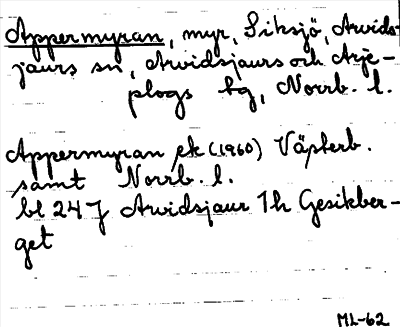 Appermyran, myr, Siksjö, Arvids-
jaurs sn, Arvidsjaurs och Arje-
plogs tg, Norrb. l.
Appermyran ek (1960) Västerb.
samt Norrb. l.
bl 24 J Arvidsjaur 1h Gesikber-
get
ML-62